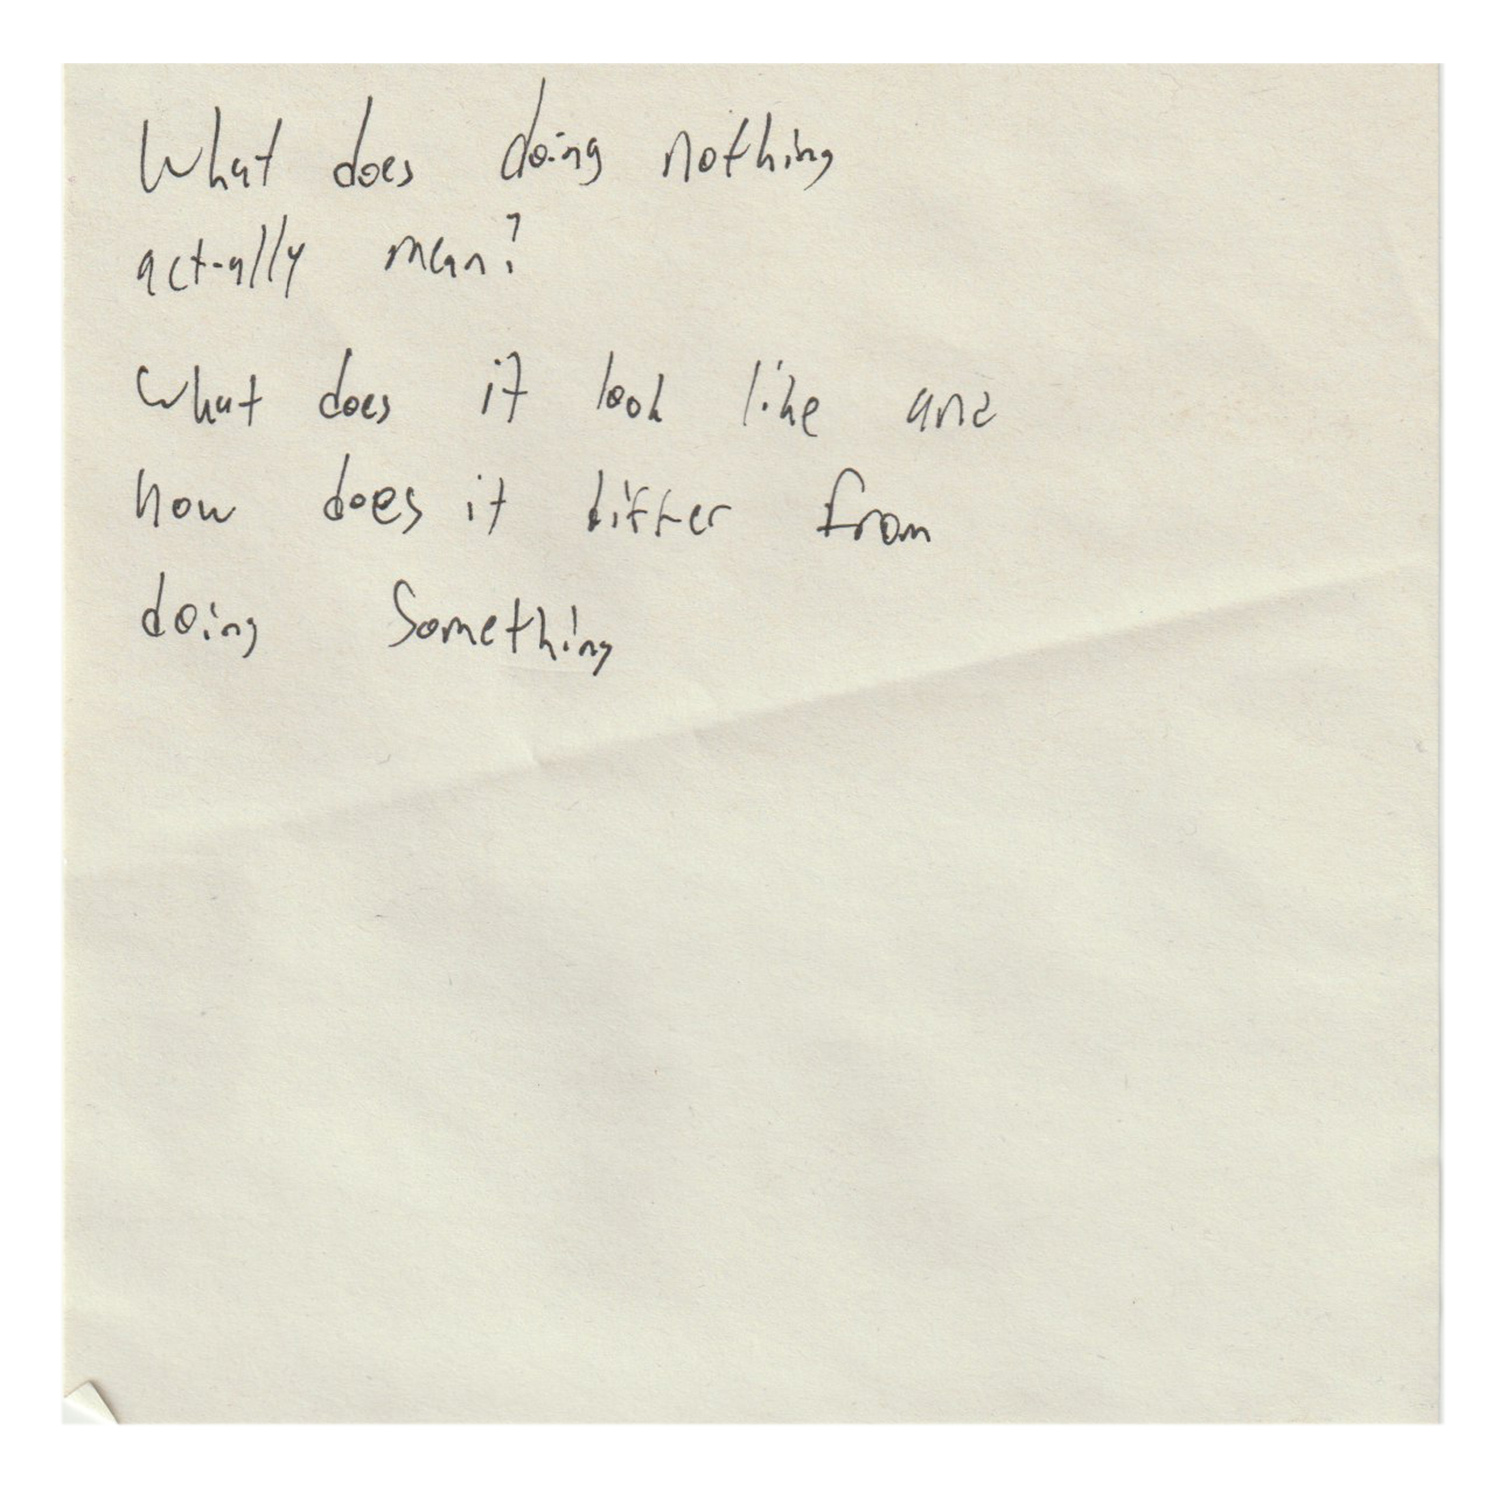 What does doing nothing
actually mean?
What does it look like and
how does it differ from
doing something